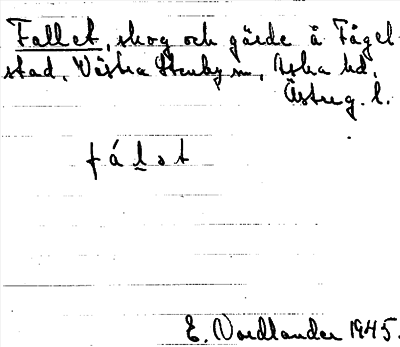 Fallet, skog och gärde å Fågel-
stad, Västra Stenby sn, Aska hd,
Österg. l.
fálət
E. Nordlander 1945.